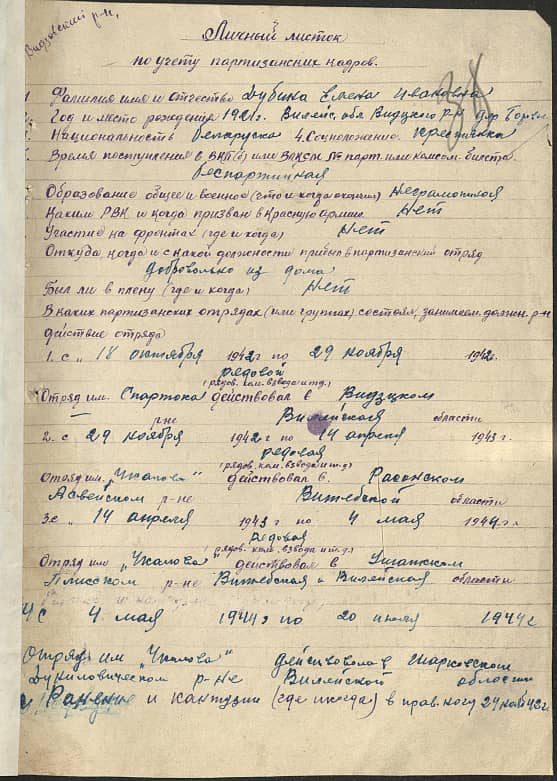 Видзовский р-н.
Личный листок
по учету партизанских кадров.
Фамилия имя и отчество Дубина Елена Ивановна
Год и место рождения 1921г. Вилейс. обл Видзского р-н дер
Национальность беларуска 4. Соцположение. крестянка
Время поступления в ВКП(б) или ВЛКСМ № парт. или комсом. билета.
беспартийная
Образование общее и военное (что и когда окончил) Неграмотная
Каким РВК и когда призван в Красную армию Нет
Участие на фронтах (где и когда) Нет
Откуда, когда и с какой должности прибыл в партизанский отряд
добровольно из дома
Был ли в плену (где и когда) Нет
В каких партизанских отрядах (или группах) состоял, занимаем. должн. р-н
действие отряда)
1. с „ 18 октября 1942г по 29 ноября 1942г.
редовой
(рядов. ком. взвода и т.д.)
Отряд им. Спартока действовал в Видзуком
— р-не Вилейская области
2. с 29 ноября 1942г по 14 апреля 1943г.
редовая
(рядов. ком. взвода и т.д)
Отряд им. „Чкалова" действовал в. Расонском
Асвейском р-не Витебской области
3. с „ 14 апреля 1943 г по 4 мая 1944г.
редовая
(рядов. ком. взвода и т.д.)
Отряд им „Чкалова" действовал в Ушацком
Плисском р-не Витебская и Вилейская области
4 с 4 мая 1944г по 20 июля 1944г
Отряд им „Чкалова" действовал в Шарковском
Дуниловическом р-не Вилейской области
Ранение и кантузии (где и когда) в прав. ногу 24 ноя 42г